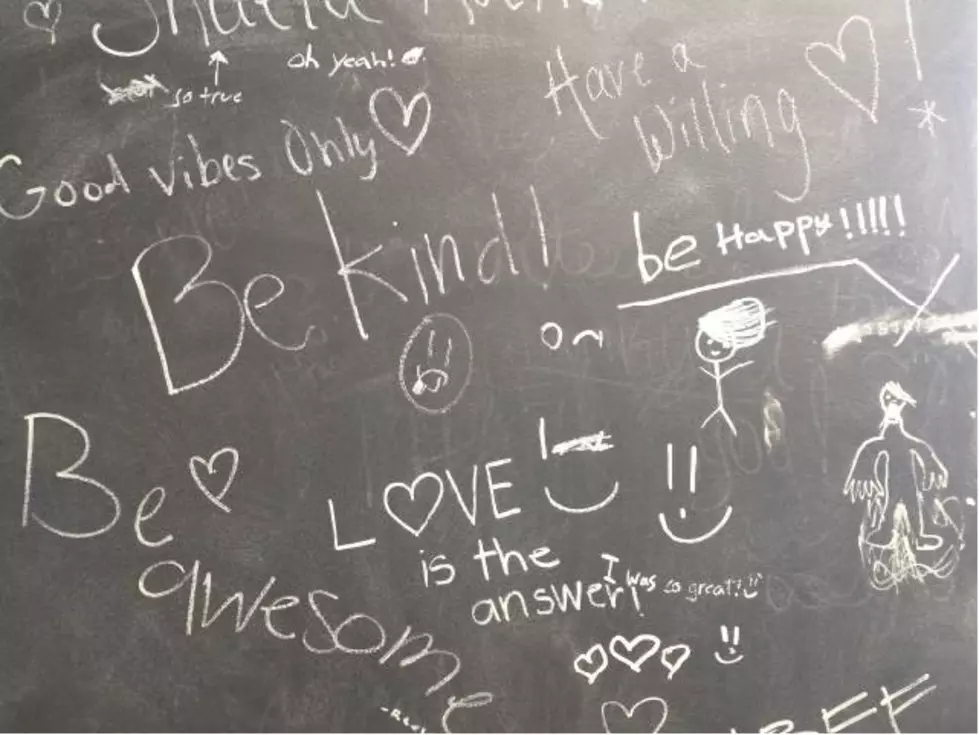 oh yeah!
so true
Have a
Willing
Good vibes Only
Be kind!
be Happy!!!!!
Be
awesome
LOVE
is the
answer!
I was so great!